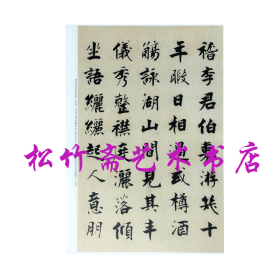 稽李君伯游十
年暇日相過或樽酒
觴詠湖山間見其丰
儀秀整襟灑落傾
坐語纚纚起人意朋
松竹斋艺术书店